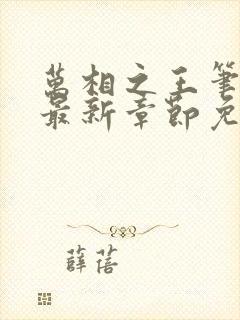 萬相之王筆
最新章節免
薛蓓